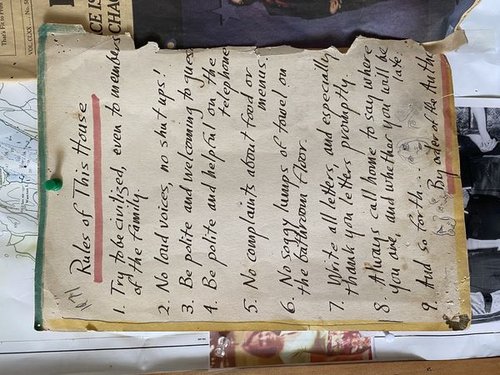 1971
Rules of This House
1. Try to be civilized, even to members
of the family.
2. No loud voices, no shut ups!
3. Be polite and welcoming to gues
4. Be polite and helpful on the
telephone
5. No complaints about food or
menus
6. No soggy lumps of towel on
the bathroom floor.
7. Write all letters, and especially
thank you letters promptly.
8. Always call home to say where
you are, and whether you will be
late
9. And so forth...
By order of the Auth
VOL. CXX... No.